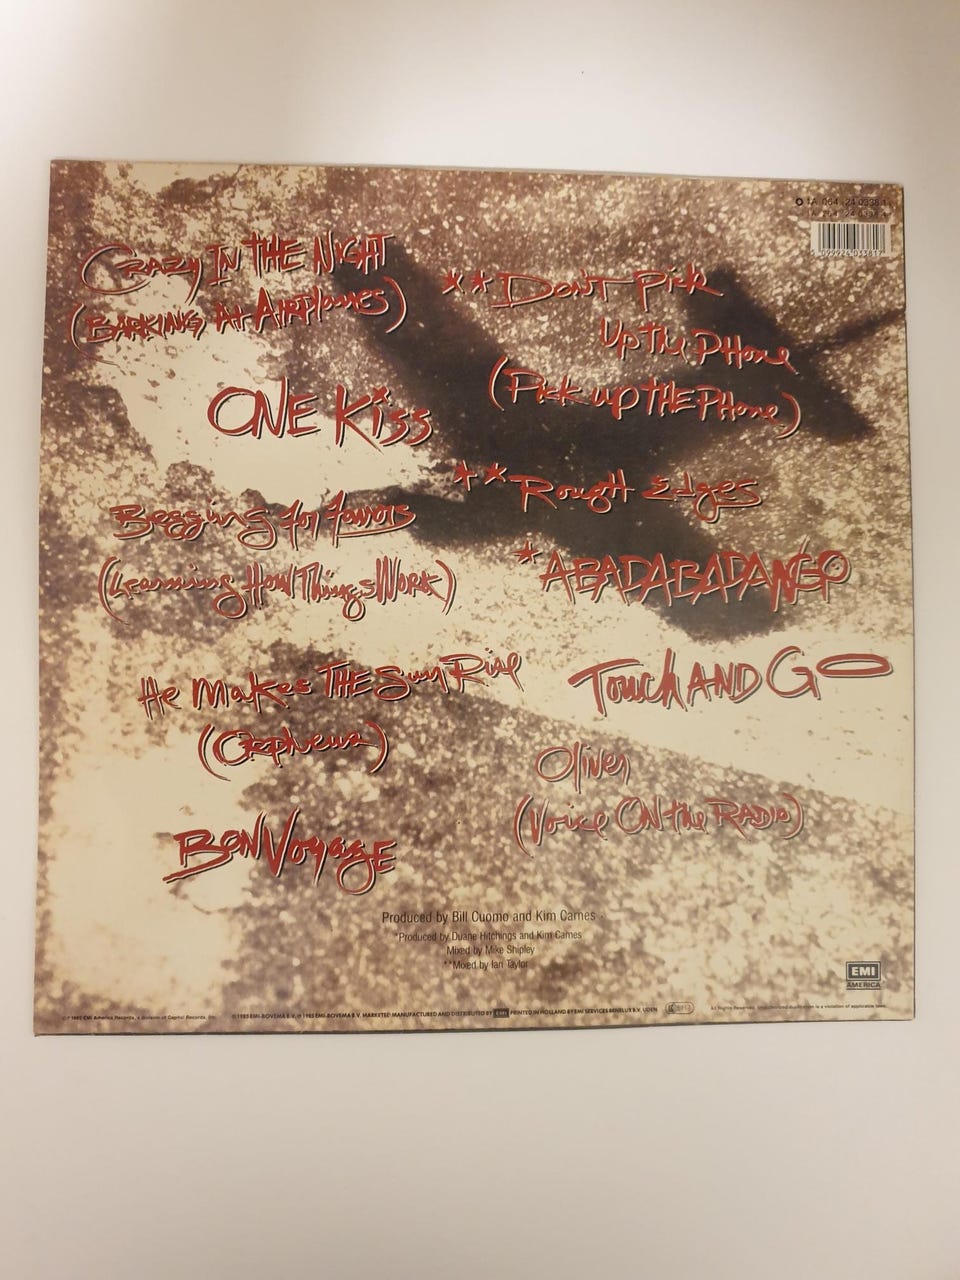 1A 064 24 0338 1
Crazy IN THE NIGHT
(BARKING At AIRPlanes)
ONE Kiss
Begging for favors
(Learning HOW Things WORK)
He Makes THE Sun Rise
(Orpheus)
BON Voyage
**DON'T Pick
Up the PHone
(Pick up THE PHone)
**Rough Edges
*ABADABADANGO
Touch AND GO
Oliver
(Voice ON the RADIO)
Produced by Bill Cuomo and Kim Carnes
*Produced by Duane Hitchings and Kim Carnes
Mixed by Mike Shipley
**Mixed by Ian Taylor
EMI
AMERICA
1985 EMI America Records, a division of Capitol Records, Inc.
1985 EMI-BOVEMA B.V. ℗ 1985 EMI-BOVEMA B.V. MARKETED MANUFACTURED AND DISTRIBUTED BY EMI PRINTED IN HOLLAND BY EMI SERVICES BENELUX B.V. UDEN
All Rights Reserved. Unauthorized duplication is a violation of applicable laws.